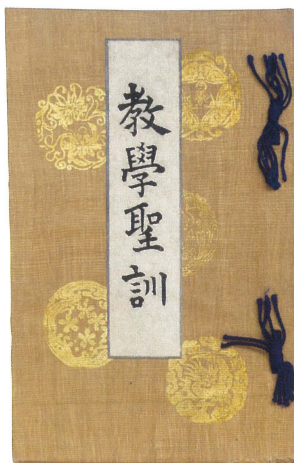 教學聖訓